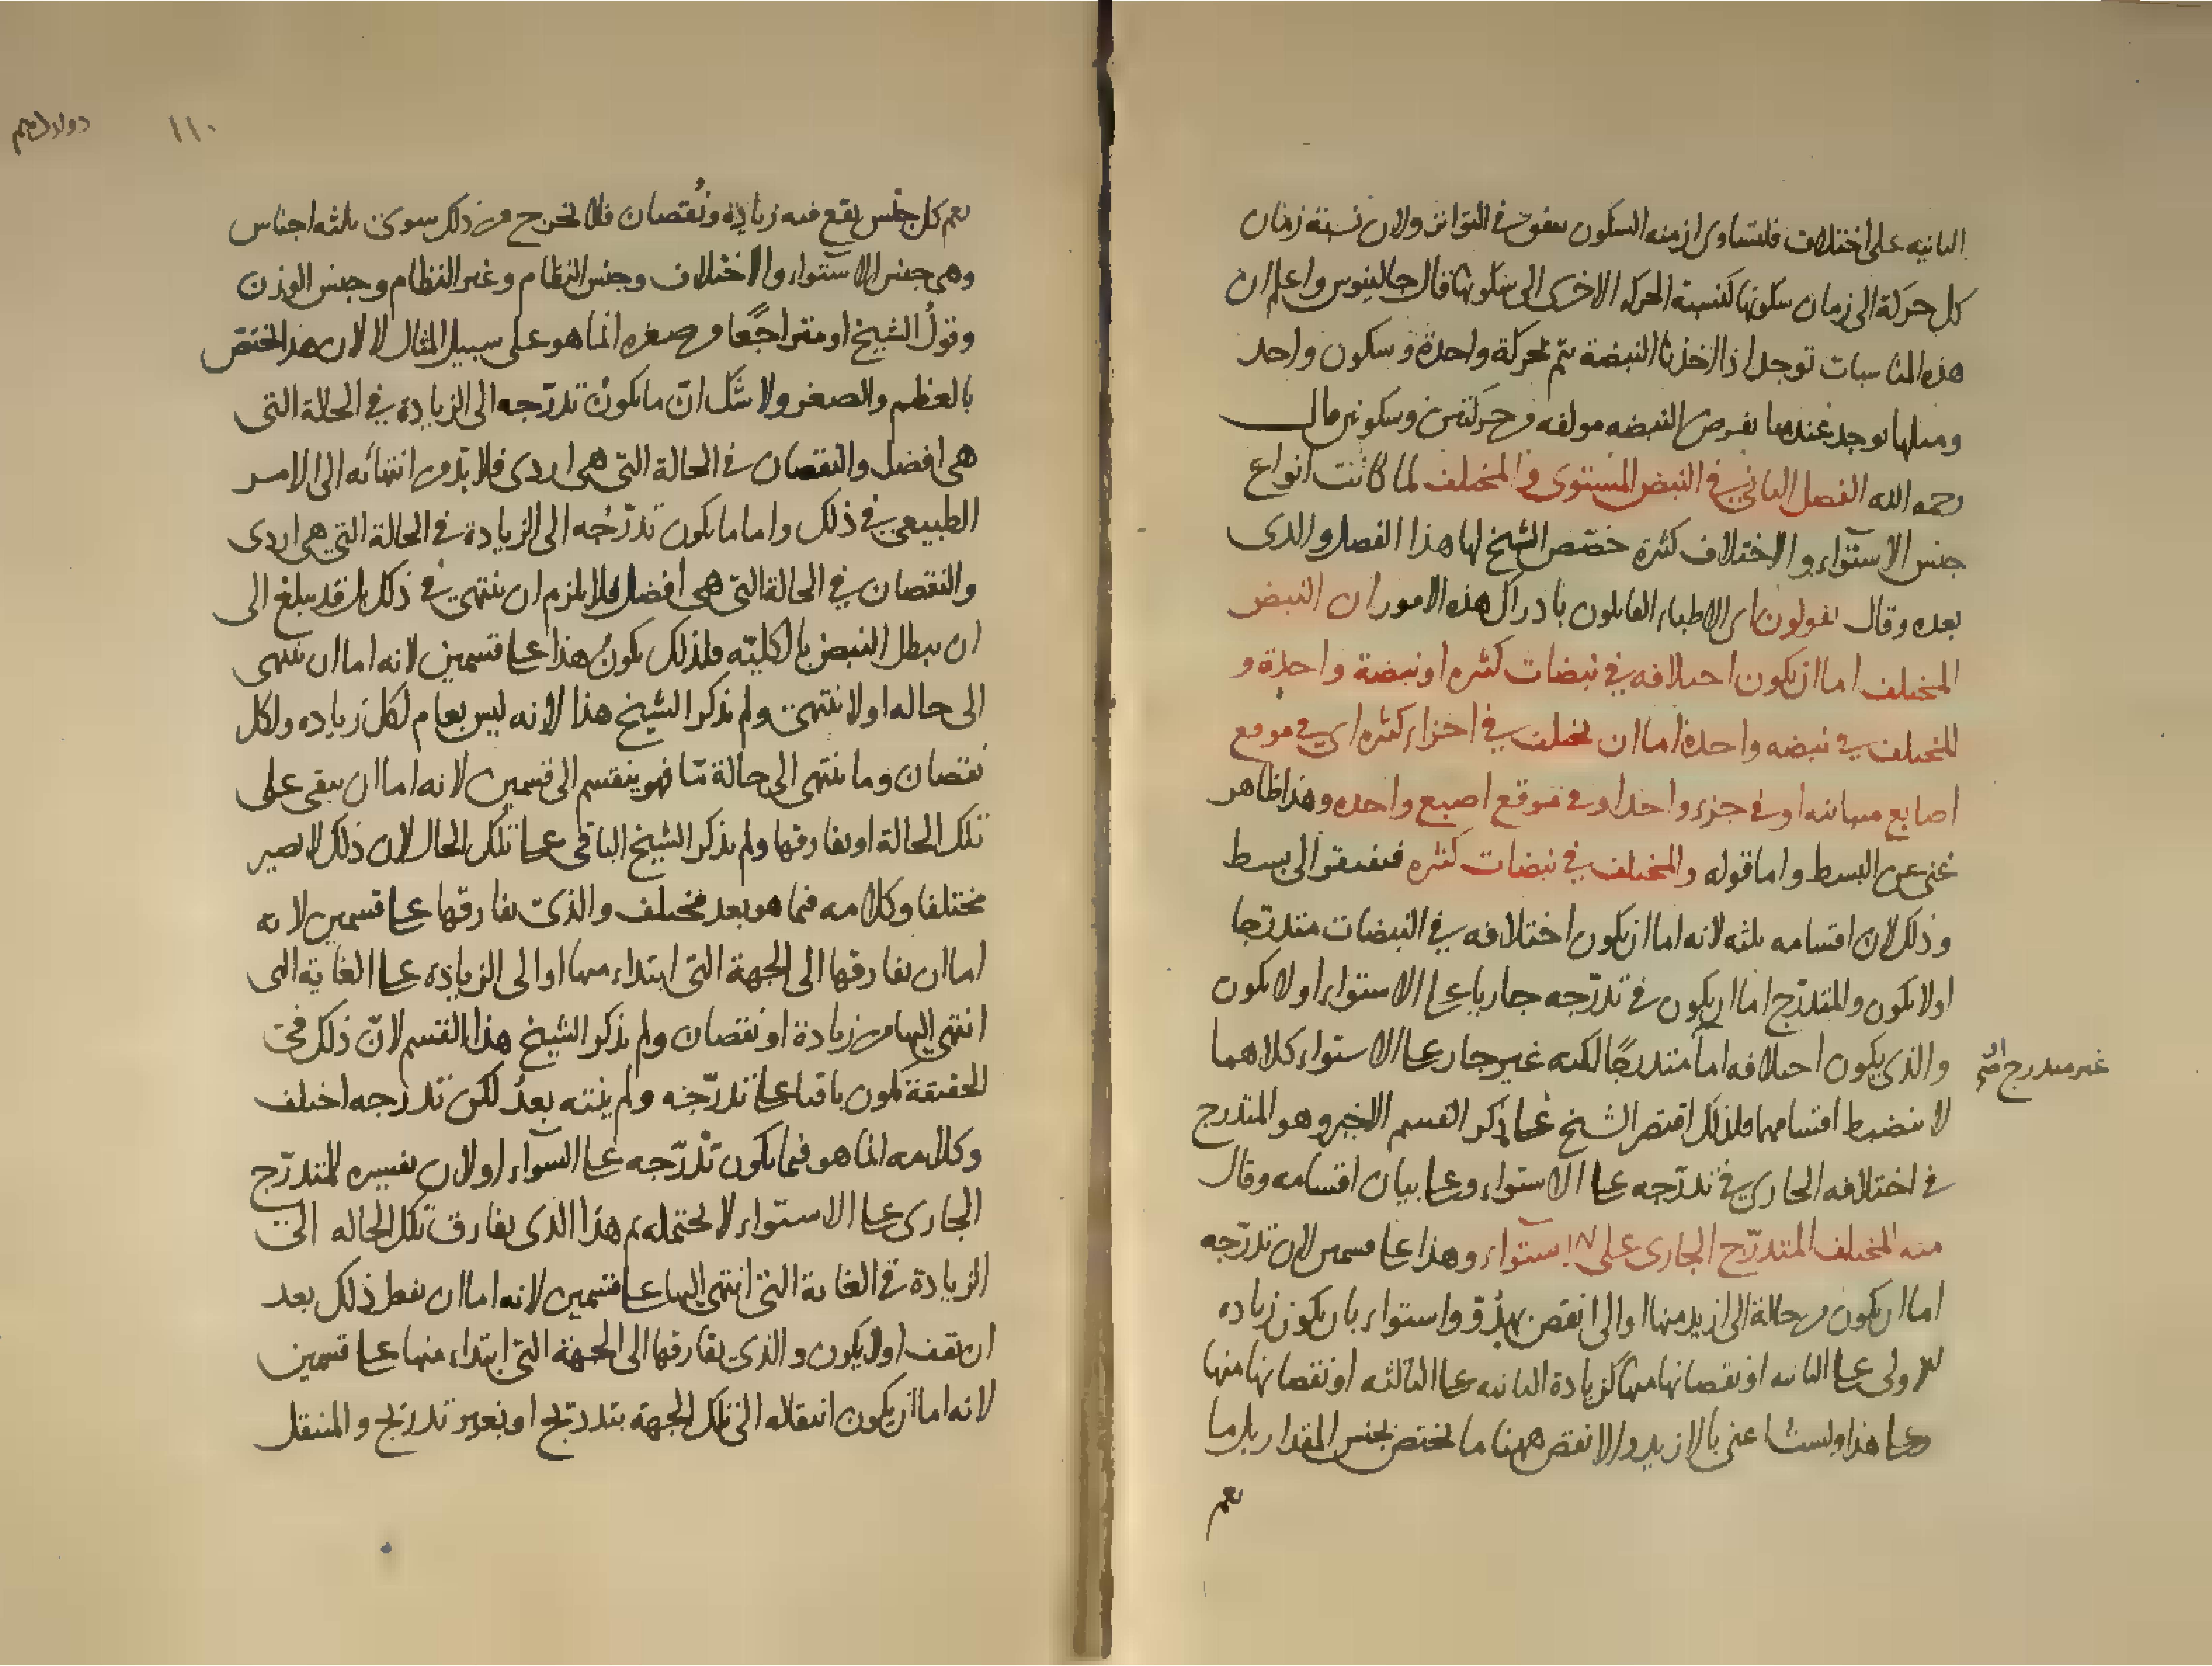 الثانيه على اختلاف فلتساوى ازمنه السكون يتفق فى التواتر ولان نسبة زمان
كل حركة الى زمان سكونها كنسبة الحركه الاخرى الى سكونها قال جالينوس واعلم ان
هذه المناسبات توجد اذا اخذنا النبضة يتم بحركة واحدة وسكون واحد
ومثلها يوجد عندما يفرض النبضه مولفه من حركتين وسكونين قال
رحمه الله الفصل الثانى فى النبض المستوى والمختلف لما كانت انواع
جنس الاستواء والاختلاف كثيرة خصص الشيخ لها هذا الفصل والذى
بعده وقال يقولون اى الاطباء القايلون بادراك هذه الامور ان النبض
المختلف اما ان يكون اختلافه فى نبضات كثيره او نبضة واحدة و
المختلف فى نبضه واحدة اما ان يختلف فى اجزاء كثيره اى فى موقع
اصابع متباينه او فى جزء واحد او فى موقع اصبع واحده وهذا ظاهر
غنى عن البسط واما قوله والمختلف فى نبضات كثيره فيفتقر الى بسط
وذلك لان اقسامه ثلثه لانه اما ان يكون اختلافه فى النبضات متدرّجا
اولا يكون والمتدرّج اما ان يكون فى تدرّجه جاريا على الاستواء اولا يكون
والذى يكون اختلافه اما متدرجًا لكنه غير جار على الاستواء كلاهما
غير متدرج او
لا ينضبط اقسامهما فلذلك اقتصر الشيخ على ذكر القسم الاخير وهو المتدرج
فى اختلافه الجارى فى تدرّجه على الاستواء وعلى بيان اقسامه وقال
منه المختلف المتدرّج الجارى على الاستواء وهذا على قسمين لان تدرّجه
اما ان يكون من حالة الى ازيد منها او الى انقص بهذّو واستواء بان يكون زياده
الاولى على الثانيه او نقصانها منها كزيادة الثانيه على الثالثه او نقصانها منها
وعلى هذا ولست اعنى بالازيد والانقص ههنا ما يختص بجنس المقدار بل ما
يعم
١١٠
يعم كل جنس يقع فيه زيادة ونُقصان فلا يخرج من ذلك سوى ثلثه اجناس
وهى جنس الاستواء والاختلاف وجنس النظام وغير النظام وجنس الوزن
وقولُ الشيخ او متراجعًا من صغره انما هو على سبيل المثال لا لان هذا يختص
بالعظم والصغر ولا شك انّ ما يكونُ تدرّجه الى الزيادة فى الحالة التى
هى افضل والنقصان فى الحالة التى هى اردى فلا بدّ من انتهائه الى الامر
الطبيعى فى ذلك واما ما يكون تدرّجُه الى الزيادة فى الحالة التى هى اردى
والنقصان فى الحالة التى هى افضل فلا يلزم ان ينتهى فى ذلك بل قد يبلغ الى
ان يبطل النبض بالكليّه فلذلك يكونُ هذا على قسمين لانه اما ان ينتهى
الى حاله او لا ينتهى ولم يذكر الشيخ هذا لانه ليس بعام لكل زياده ولكل
نقصان وما ينتهى الى حالة مّا فهو ينقسم الى قسمين لانه اما ان يبقى على
تلك الحالة او يفارقها ولم يذكر الشيخ الباقى على تلك الحال لان ذلك لا يصير
مختلفا وكلامه فيما هو بعد مختلف والذى يفارقها على قسمين لانه
اما ان يفارقها الى الجهة التى ابتداء منها او الى الزيادة على الغاية التى
انتهى اليها من زيادة او نقصان ولم يذكر الشيخ هذا القسم لانّ ذلك فى
الحقيقة يكون باقيا على تدرّجه ولم ينته بعدُ لكن تدرّجه اختلف
وكلامه انما هو فيما يكون تدرّجه على السواء او لان تفسيره للمتدرّج
الجارى على الاستواء لا يحتمله ثم هذا الذى يفارق تلك الحاله الى
الزيادة فى الغاية التى انتهى اليها على قسمين لانه اما ان يفعل ذلك بعد
ان يقف اولا يكون والذى يفارقها الى الجهة التى ابتداء منها على قسمين
لانه اما ان يكون انتقاله الى تلك الجهة بتدريج او بغير تدريج والمنتقل